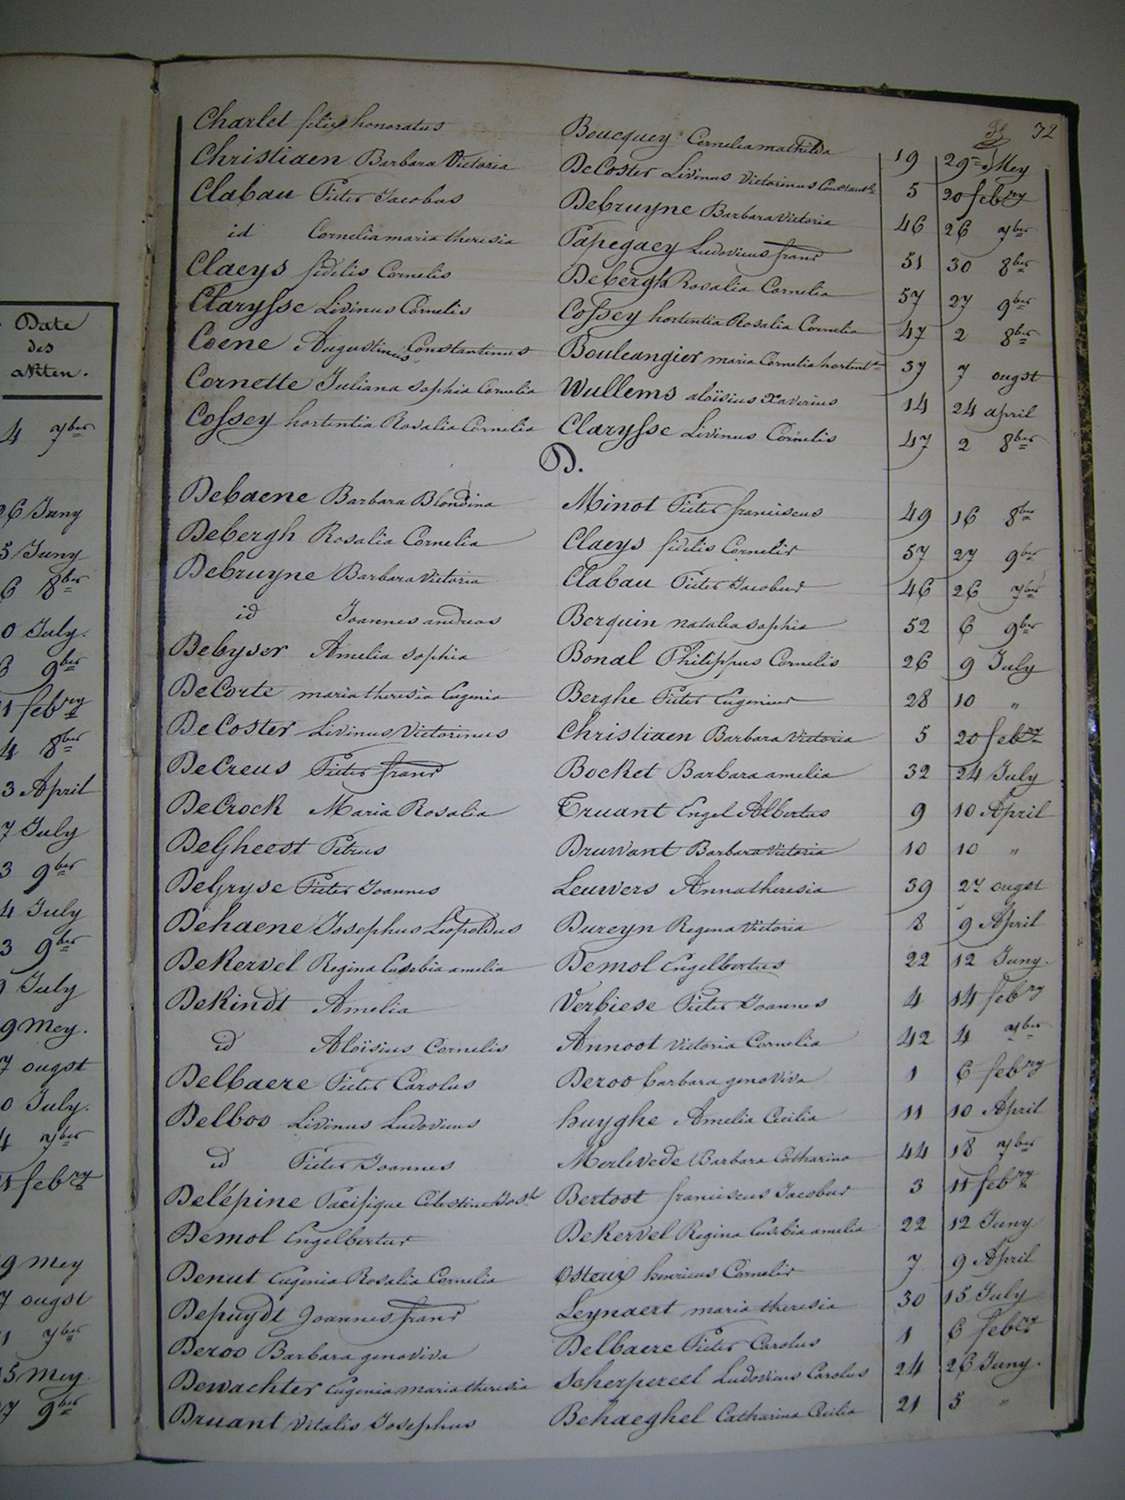 Date
des
akten.
4 7ber
26 Juny
5 Juny
6 8ber
0 July.
6 9ber
11 febry
4 8ber
3 April
7 July
3 9ber
4 July
3 9ber
9 July
9 Mey.
7 ougst
0 July.
4 7ber
11 febry
9 mey
7 ougst
1 7ber
5 mey.
7 9ber
32
Charlet felix honoratus Boucquey Cornelia mathilda 19 29 Mey
Christiaen Barbara Victoria DeCoster Livinus Victorinus 5 20 febry
Clabau Pieter Jacobus Debruyne Barbara Victoria 46 26 7ber
id Cornelia maria theresia Papegaey Ludovicus frans 51 30 8ber
Claeys fidelis Cornelis Debergh Rosalia Cornelia 57 27 9ber
Clarysse Livinus Cornelis Cossey hortentia Rosalia Cornelia 47 2 8ber
Coene Augustinus Constantinus Bouleangier maria Cornelia 37 7 ougst
Cornette Juliana Sophia Cornelia Wullems aloïsius Xaverius 14 24 april
Cossey hortentia Rosalia Cornelia Clarysse Livinus Cornelis 47 2 8ber
D.
Debaene Barbara Blondina Minot Pieter franciscus 49 16 8ber
Debergh Rosalia Cornelia Claeys fidelis Cornelis 57 27 9ber
Debruyne Barbara Victoria Clabau Pieter Jacobus 46 26 7ber
id Joannes andreas Berquin natalia sophia 52 6 9ber
Debyser Amelia Sophia Bonal Philippus Cornelis 26 9 July
DeCorte maria theresia Eugenia Berghe Pieter Eugenius 28 10 "
DeCoster Livinus Victorinus Christiaen Barbara Victoria 5 20 febry
DeCreus Pieter frans Bocket Barbara amelia 32 24 July
DeCrock Maria Rosalia Truant Engel Albertus 9 10 April
DeGheest Petrus Druwant Barbara Victoria 10 10 "
DeGryse Pieter Joannes Leuwers Anna theresia 39 27 ougst
Dehaene Josephus Leopoldus Dureyn Regina Victoria 8 9 April
DeKervel Regina Eusebia amelia Demol Engelbertus 22 12 Juny.
DeKindt Amelia Verbiese Pieter Joannes 4 14 febry
id Aloïsius Cornelis Annoot Victoria Cornelia 42 4 7ber
Delbaere Pieter Carolus Deroo barbara genoviva 1 6 febry
Delbos Livinus Ludovicus huyghe Amelia Cecilia 11 10 April
id Pieter Joannes Merlevede Barbara Catharina 44 18 7ber
Delépine Pacifique Celestine Bertoot franciscus Jacobus 3 11 febry
Demol Engelbertus DeKervel Regina Eusebia amelia 22 12 Juny
Denut Eugenia Rosalia Cornelia Osteux henricus Cornelis 7 9 April
Depuydt Joannes frans Leynaert maria theresia 30 15 July
Deroo Barbara genoviva Delbaere Pieter Carolus 1 6 febry
Dewachter Eugenia maria theresia Scherpereel Ludovicus Carolus 24 26 Juny.
Druant Vitalis Josephus Behaeghel Catharina Cecilia 21 5 "